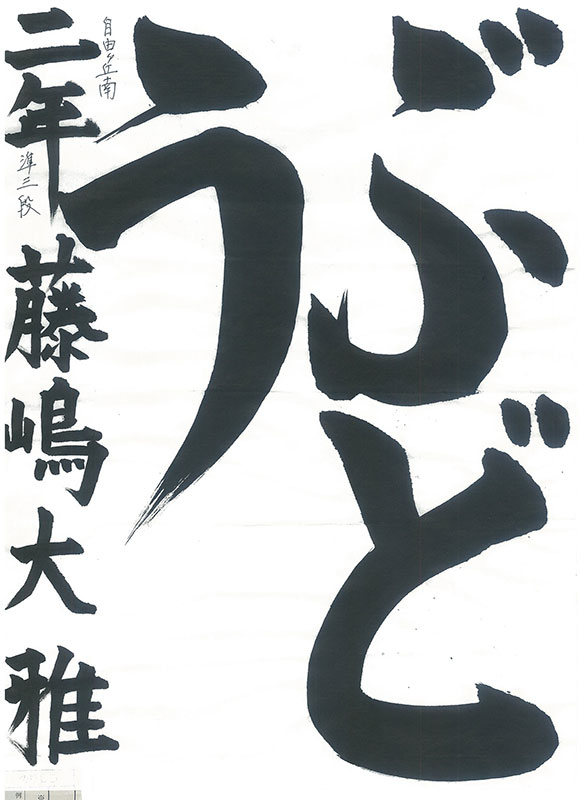 ぶど
う
自由ヶ丘南
二年 藤嶋大雅
準三段